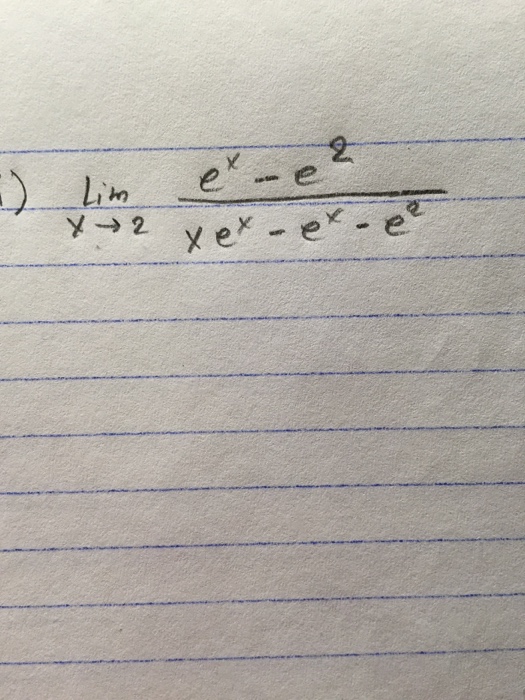 i) Lim x→2 (e^x - e^2) / (xe^x - e^x - e^2)